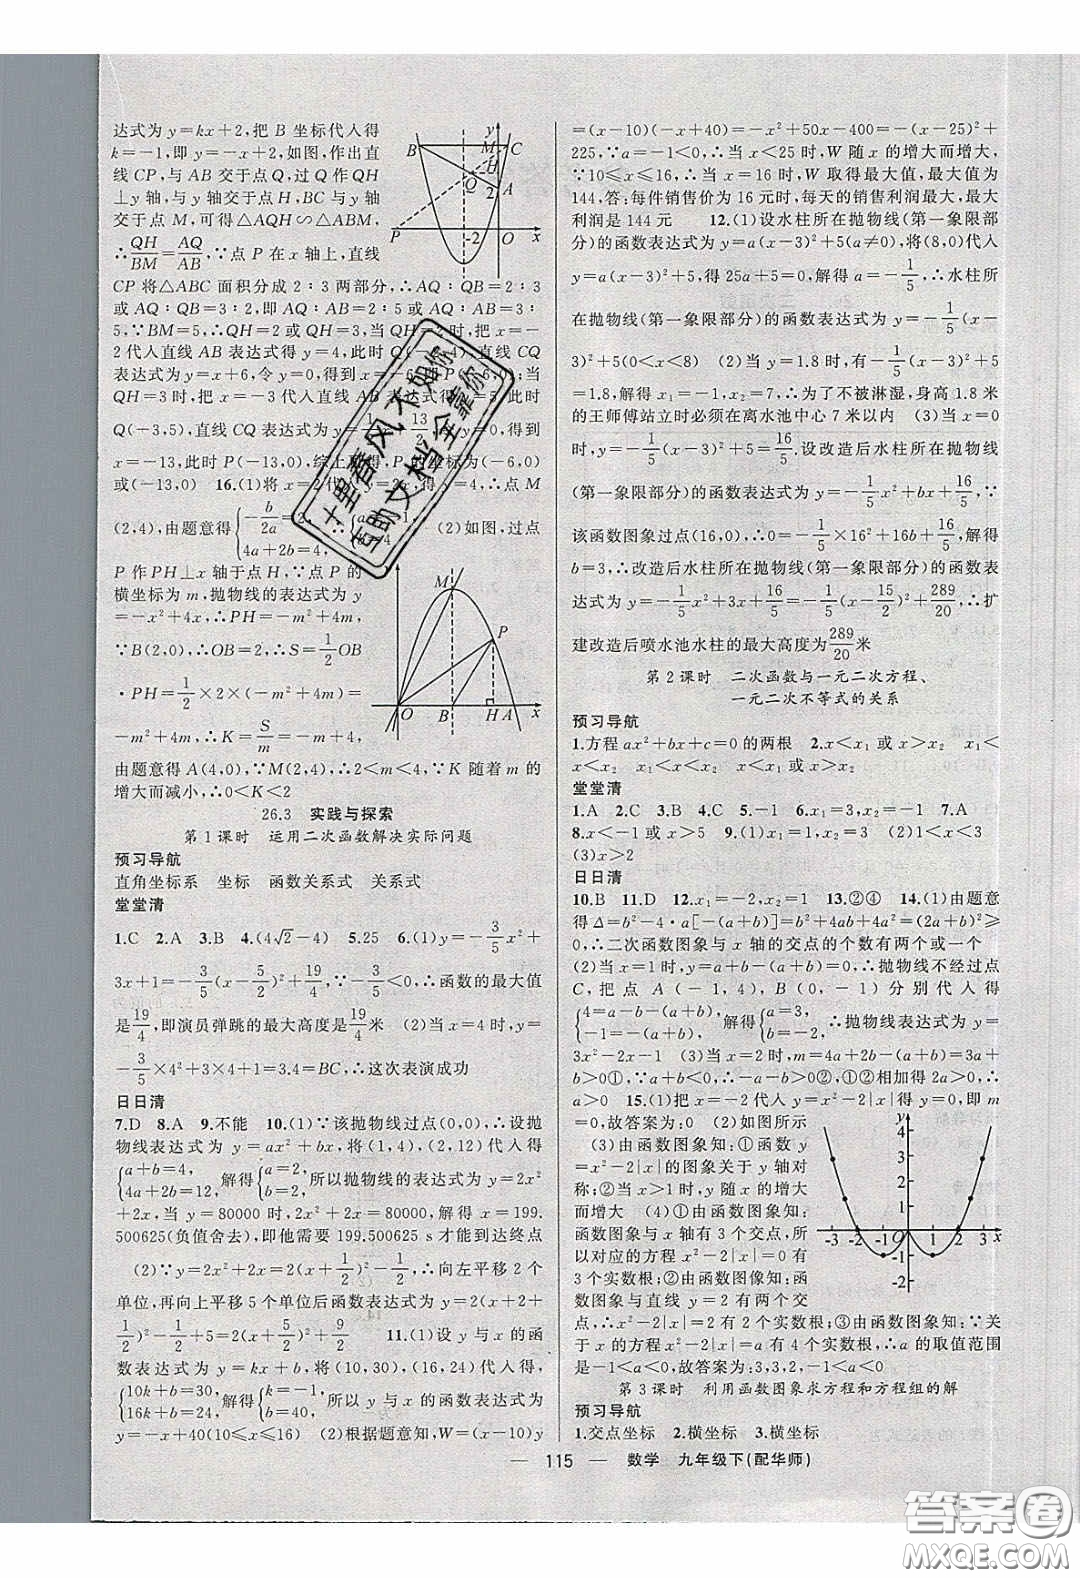 达式为 y=kx+2,把 B 坐标代入得
k=-1,即 y=-x+2,如图,作出直
线 CP,与 AB 交于点 Q,过 Q 作 QH
⊥y 轴,与 y 轴交于点 H,BC 与 y 轴
交于点 M,可得△AQH∽△ABM,
∴QH/BM=AQ/AB,∵点 P 在 x 轴上,直线
CP 将△ABC 面积分成 2∶3 两部分,∴AQ∶QB=2∶3
或 AQ∶QB=3∶2,即 AQ∶AB=2∶5 或 AQ∶AB=3∶
5,∵BM=5,∴QH=2或QH=3,当QH=2时,把 x=-
2代入直线 AB 表达式得 y=4,此时 Q(-2,4),直线 CQ
表达式为 y=x+6,令 y=0,得到 x=-6,即P(-6,0);当
QH=3时,把 x=-3代入直线 AB 表达式得 y=5,此时
Q(-3,5),直线CQ表达式为 y=1/2x+13/2,令 y=0,得到
x=-13,此时 P(-13,0),综上可得,P的坐标为(-6,0)
或(-13,0) 16.(1)将 x=2代入 y=2x,得 y=4,∴点 M
(2,4),由题意得{-b/2a=2, 4a+2b=4, ∴{a=-1, b=4 (2)如图,过点
P 作PH⊥x 轴于点 H,∵点 P 的
横坐标为 m,抛物线的表达式为 y
=-x²+4x,∴PH=-m²+4m,
∵B(2,0),∴OB=2,∴S=1/2OB
·PH=1/2×2×(-m²+4m)=
-m²+4m,∴K=S/m=-m+4,
由题意得 A(4,0),∵M(2,4),∴2<m<4,∵K 随着 m 的
增大而减小,∴0<K<2
26.3 实践与探索
第1课时 运用二次函数解决实际问题
预习导航
直角坐标系 坐标 函数关系式 关系式
堂堂清
1.C 2.A 3.B 4.(4√2-4) 5.25 6.(1)y=-3/5x²+
3x+1=-3/5(x-5/2)²+19/4,∵-3/5<0,∴函数的最大值
是19/4,即演员弹跳的最大高度是19/4米 (2)当 x=4时,y=
-3/5×4²+3×4+1=3.4=BC,∴这次表演成功
日日清
7.D 8.A 9.不能 10.(1)∵该抛物线过点(0,0),∴设抛
物线表达式为 y=ax²+bx,将(1,4),(2,12)代入得
{a+b=4, 4a+2b=12, 解得{a=2, b=2, 所以抛物线的表达式为 y=2x²
+2x,当 y=80000 时,2x²+2x=80000,解得 x=199.
500625(负值舍去),即他需要 199.500625 s才能到达终点
(2)∵y=2x²+2x=2(x+1/2)²-1/2,∴向左平移 2 个
单位,再向上平移 5 个单位后函数表达式为 y=2(x+2+
1/2)²-1/2+5=2(x+5/2)²+9/2 11.(1)设 y 与 x 的函
数表达式为 y=kx+b,将(10,30),(16,24)代入得
{10k+b=30, 16k+b=24, 解得{k=-1, b=40, 所以 y 与 x 的函数表达式
为 y=-x+40(10≤x≤16) (2)根据题意知,W=(x-10)y
=(x-10)(-x+40)=-x²+50x-400=-(x-25)²+
225,∵a=-1<0,∴当 x<25时,W 随 x 的增大而增大,
∵10≤x≤16,∴当 x=16时,W 取得最大值,最大值为
144,答:每件销售价为 16 元时,每天的销售利润最大,最大
利润是 144 元 12.(1)设水柱所在抛物线(第一象限部
分)的函数表达式为 y=a(x-3)²+5(a≠0),将(8,0)代入
y=a(x-3)²+5,得 25a+5=0,解得 a=-1/5,∴水柱所
在抛物线(第一象限部分)的函数表达式为 y=-1/5(x-
3)²+5(0<x<8) (2)当 y=1.8时,有-1/5(x-3)²+5
=1.8,解得 x₁=-1,x₂=7,∴为了不被淋湿,身高 1.8 米
的王师傅站立时必须在离水池中心 7 米以内 (3)当 x=0
时,y=-1/5(x-3)²+5=16/5.设改造后水柱所在抛物线
(第一象限部分)的函数表达式为 y=-1/5x²+bx+16/5,∵
该函数图象过点(16,0),∴0=-1/5×16²+16b+16/5,解得
b=3,∴改造后水柱所在抛物线(第一象限部分)的函数表
达式为 y=-1/5x²+3x+16/5=-1/5(x-15/2)²+289/20,∴扩
建改造后喷水池水柱的最大高度为289/20米
第2课时 二次函数与一元二次方程、
一元二次不等式的关系
预习导航
1.方程 ax²+bx+c=0的两根 2.x<x₁ 或 x>x₂ x₁<
x<x₂ x₁<x<x₂ x<x₁ 或 x>x₂
堂堂清
1.A 2.C 3.B 4.C 5.-1 6.x₁=3,x₂=-1 7.A
8.x<-1或x>5 9.(1)x₁=1,x₂=3 (2)1<x<3
(3)x>2
日日清
10.B 11.D 12.x₁=-2,x₂=1 13.②④ 14.(1)由题意
得 Δ=b²-4·a[-(a+b)]=b²+4ab+4a²=(2a+b)²≥
0,∴二次函数图象与 x 轴的交点的个数有两个或一个
(2)当 x=1时,y=a+b-(a+b)=0,∴抛物线不经过点
C,把点 A(-1,4),B(0,-1)分别代入得
{4=a-b-(a+b), -1=-(a+b), 解得{a=3, b=-2, ∴抛物线表达式为 y=
3x²-2x-1 (3)当 x=2时,m=4a+2b-(a+b)=3a+
b>0①,∵a+b<0,∴-a-b>0②,①+②相加得 2a>0,∴
a>0 15.(1)把 x=-2代入 y=x²-2|x|得 y=0,即 m
=0,故答案为:0 (2)如图所示
(3)由函数图象知:①函数 y
=x²-2|x|的图象关于 y 轴对
称;②当 x>1时,y 随 x 的增大
而增大 (4)①由函数图象知:
函数图象与 x 轴有 3 个交点,所
以对应的方程 x²-2|x|=0有
3个实数根;②由函数图像知:函
数图象与直线 y=2有两个交
点,∴x²-2|x|=2有2个实数根;③由函数图象知:∵关于
x 的方程 x²-2|x|=a有 4 个实数根,∴a 的取值范围
是-1<a<0,故答案为:3,3,2,-1<a<0
第3课时 利用函数图象求方程和方程组的解
预习导航
1.交点坐标 2.横坐标 3.横坐标
— 115 — 数学 九年级下(配华师)
十里春风不如你
互助文档全靠你
答案圈
MXQE.COM